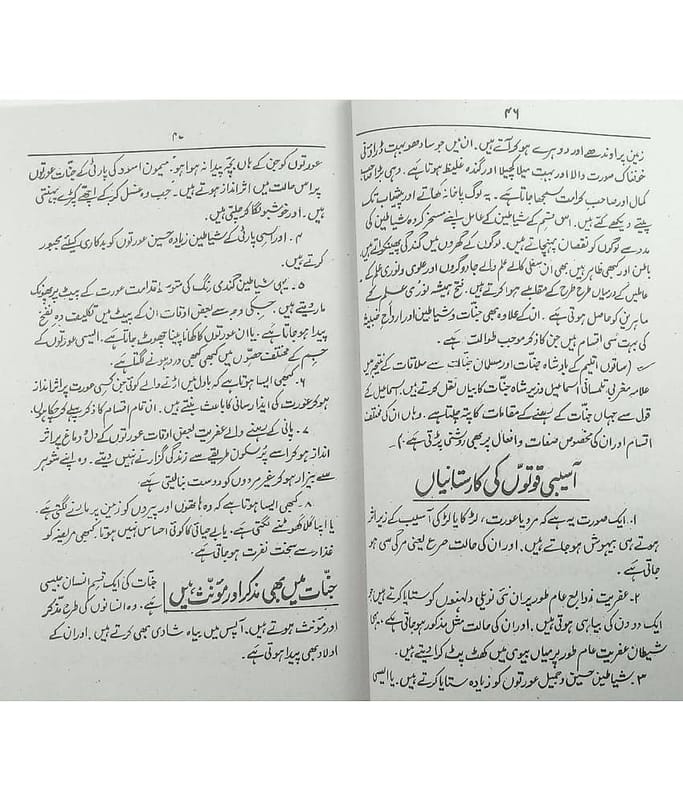 ۴۶
زمین پر اوندھے اور دوہرے ہوکر آتے ہیں۔ ان میں جو سادھو بہت ڈراؤنی
خوفناک صورت والا اور بہت میلا کچیلا اور گندہ غلیظ ہوتا ہے۔ وہی بڑا صاحب
کمال اور صاحب کرامت سمجھا جاتا ہے۔ یہ لوگ پاخانہ کھاتے اور پیشاب تک
پیتے دیکھے گئے ہیں۔ اس قسم کے شیاطین کے عامل اپنے مسخر کردہ شیاطین کی
مدد سے لوگوں کو نقصان پہنچاتے ہیں۔ لوگوں کے گھروں میں گندگی پھینکواتے ہیں
باطن اور کبھی ظاہر ہیں۔ بھی ان سفلی کالے علم والے جادوگروں اور علوی و نوری علم کے
عاملین کے درمیان طرح طرح کے مقابلے ہوا کرتے ہیں۔ فتح ہمیشہ نوری علم کے
ماہرین کو حاصل ہوتی ہے۔ ان کے علاوہ بھی جنات و شیاطین اور ارواح خبیثہ
کی بہت سی اقسام ہیں جن کا ذکر موجب طوالت ہے۔
(ساتوں اقلیم کے بادشاہ جنات اور مسلمان جنات سے ملاقات کے نتیجہ میں
علامہ مغربی تلمسانی اسماعیل وزیر شاہ جنات کا بیان نقل کرتے ہیں۔ اسماعیل کے
قول سے جہاں جنات کے بسنے کے مقامات کا پتہ چلتا ہے۔ وہاں ان کی مختلف
اقسام اور ان کی مخصوص صفات و افعال پر بھی روشنی پڑتی ہے۔)
آسیبی قوتوں کی کارستانیاں
۱۔ ایک صورت یہ ہے کہ مرد یا عورت، لڑکا یا لڑکی آسیب کے زیر اثر
ہوتے ہی بیہوش ہوجاتے ہیں۔ اور ان کی حالت صرع یعنی مرگی سی ہو
جاتی ہے۔
۲۔ عفریت ذوابع عام طور پر ان نئی نویلی دلہنوں کو ستایا کرتے ہیں جو
ایک دو دن کی بیاہی ہوتی ہیں۔ اور ان کی حالت مثل مذکور ہوجاتی ہے۔
شیطان عفریت عام طور پر میاں بیوی میں کھٹ پٹ کرا دیتے ہیں۔
۳۔ شیاطین حسین و جمیل عورتوں کو زیادہ ستایا کرتے ہیں۔ یا ایسی
عورتوں کو جن کے ہاں بچہ پیدا نہ ہوا ہو۔ میمون اسود کی پارٹی کے جنات عورتوں
پر اس حالت میں اثر انداز ہوتے ہیں۔ جب وہ غسل کرکے اچھے کپڑے پہنتی
ہیں۔ اور خوشبو لگا کر چلتی ہیں۔
۴۔ اور اسی پارٹی کے شیاطین زیادہ حسین عورتوں کو بدکاری کیلئے مجبور
کرتے ہیں۔
۵۔ یہی شیاطین گندمی رنگ کی قدامت عورت کے پیٹ پر پھونک
مار دیتے ہیں۔ جس کی وجہ سے بعض اوقات ان کے پیٹ میں تکلیف دہ نفخ
پیدا ہوجاتا ہے۔ یا ان عورتوں کا کھانا پینا چھوٹ جاتا ہے۔ ایسی عورتوں کے
جسم کے مختلف حصوں میں کبھی کبھی درد ہونے لگتا ہے۔
۶۔ کبھی ایسا ہوتا ہے کہ بادل میں اڑنے والے کوئی جن کسی عورت پر اثر انداز
ہوکر عورت کی ایذا رسانی کا باعث بنتے ہیں۔ ان تمام اقسام کا ذکر پہلے کرچکا ہوں۔
۷۔ پانی کے بسنے والے عفریت بعض اوقات عورتوں کے دل و دماغ پر اثر
انداز ہوکر اسے پرسکون طریقے سے زندگی گزارنے نہیں دیتے۔ وہ اپنے شوہر
سے بیزار ہوکر غیر مردوں کو دوست بنا لیتی ہے۔
۸۔ کبھی ایسا ہوتا ہے کہ وہ ہاتھوں اور پیروں کو زمین پر مارنے لگتی ہے۔
یا اپنا گلا گھونٹنے لگتی ہے۔ یا بے حیائی کا کوئی احساس نہیں ہوتا۔ کبھی مریضہ کو
غذا سے سخت نفرت ہوجاتی ہے۔
جنات میں بھی مذکر اور مونث ہیں
جنات کی ایک قسم انسان جیسی
ہے۔ وہ انسانوں کی طرح مذکر
اور مونث ہوتے ہیں۔ آپس میں بیاہ شادی بھی کرتے ہیں۔ اور ان کے
اولاد بھی پیدا ہوتی ہے۔